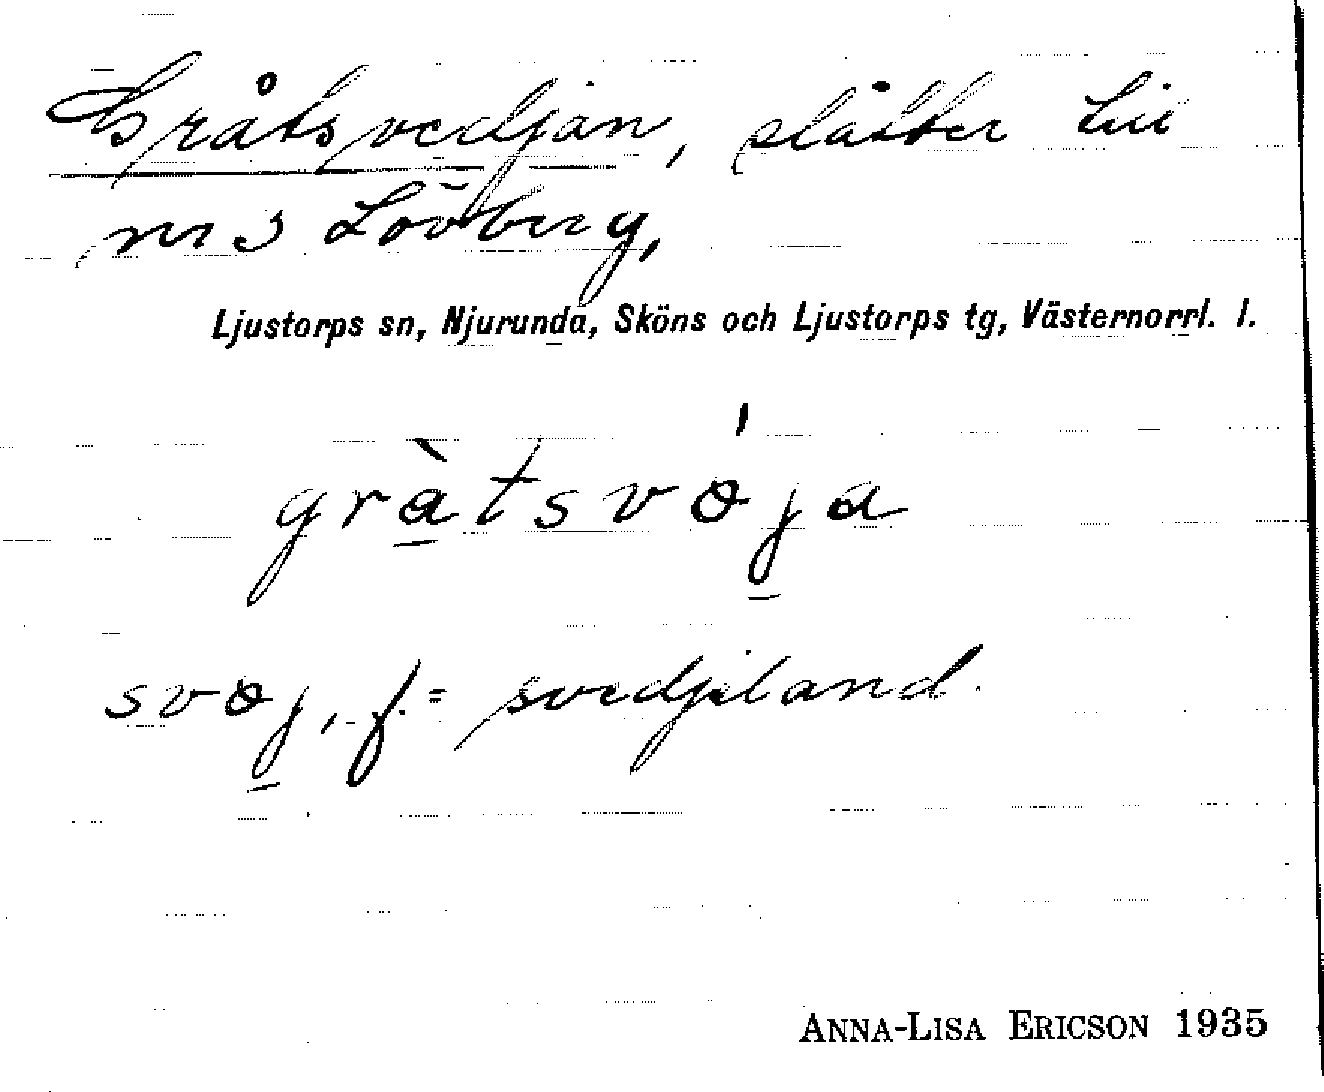 Gråtsvedjan, slåtter till
nr 3 Lövberg,
Ljustorps sn, Njurunda, Sköns och Ljustorps tg, Västernorrl. l.
gràtsvǿja
svøj, f. = svedjeland.
ANNA-LISA ERICSON 1935